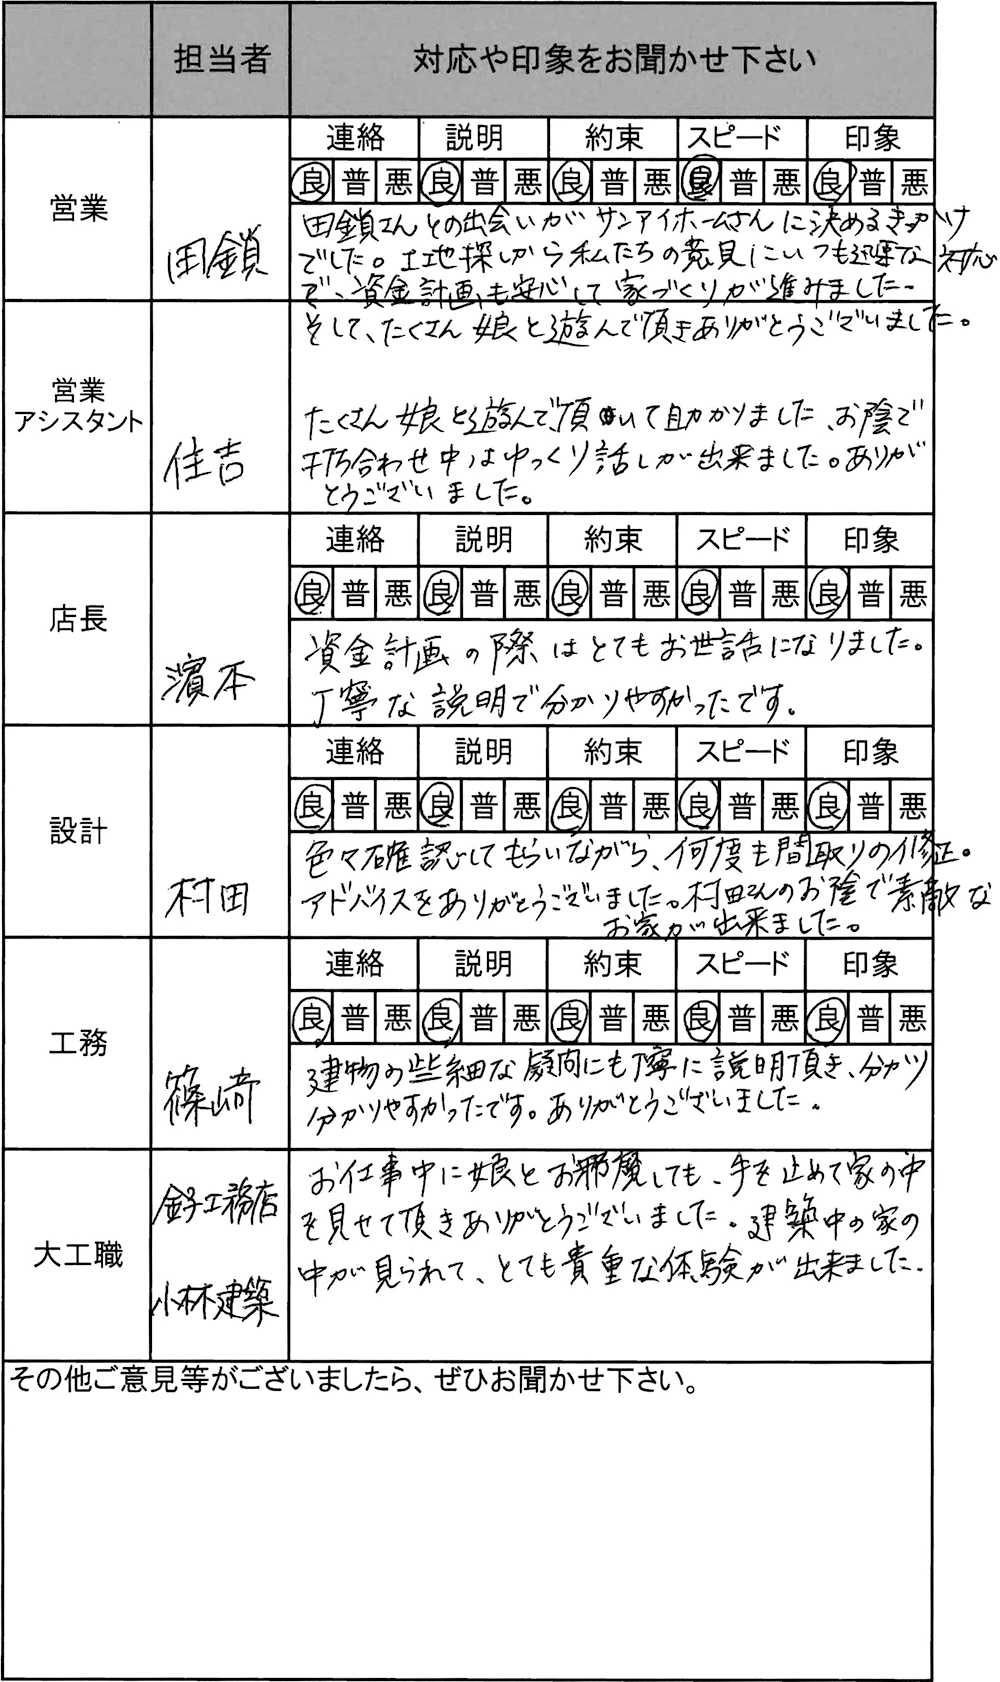 担当者 対応や印象をお聞かせ下さい
連絡 説明 約束 スピード 印象
良 普 悪 良 普 悪 良 普 悪 良 普 悪 良 普 悪
営業
田鎖
田鎖さんとの出会いがサンアイホームさんに決めるきっかけ
でした。土地探しから私たちの意見にいつも迅速な対応
で、資金計画も安心して家づくりが進みました。
そして、たくさん娘と遊んで頂きありがとうございました。
営業
アシスタント
住吉
たくさん娘と遊んで頂いて助かりました、お陰で
打ち合わせ中はゆっくり話しが出来ました。ありが
とうございました。
連絡 説明 約束 スピード 印象
良 普 悪 良 普 悪 良 普 悪 良 普 悪 良 普 悪
店長
濱本
資金計画の際はとてもお世話になりました。
丁寧な説明で分かりやすかったです。
連絡 説明 約束 スピード 印象
良 普 悪 良 普 悪 良 普 悪 良 普 悪 良 普 悪
設計
村田
色々確認してもらいながら、何度も間取りの修正。
アドバイスをありがとうございました。村田さんのお陰で素敵な
お家が出来ました。
連絡 説明 約束 スピード 印象
良 普 悪 良 普 悪 良 普 悪 良 普 悪 良 普 悪
工務
篠崎
建物の些細な疑問にも丁寧に説明頂き、分かり
分かりやすかったです。ありがとうございました。
大工職
金子工務店
小林建築
お仕事中に娘とお邪魔しても、手を止めて家の中
を見せて頂きありがとうございました。建築中の家の
中が見られて、とても貴重な体験が出来ました。
その他ご意見等がございましたら、ぜひお聞かせ下さい。